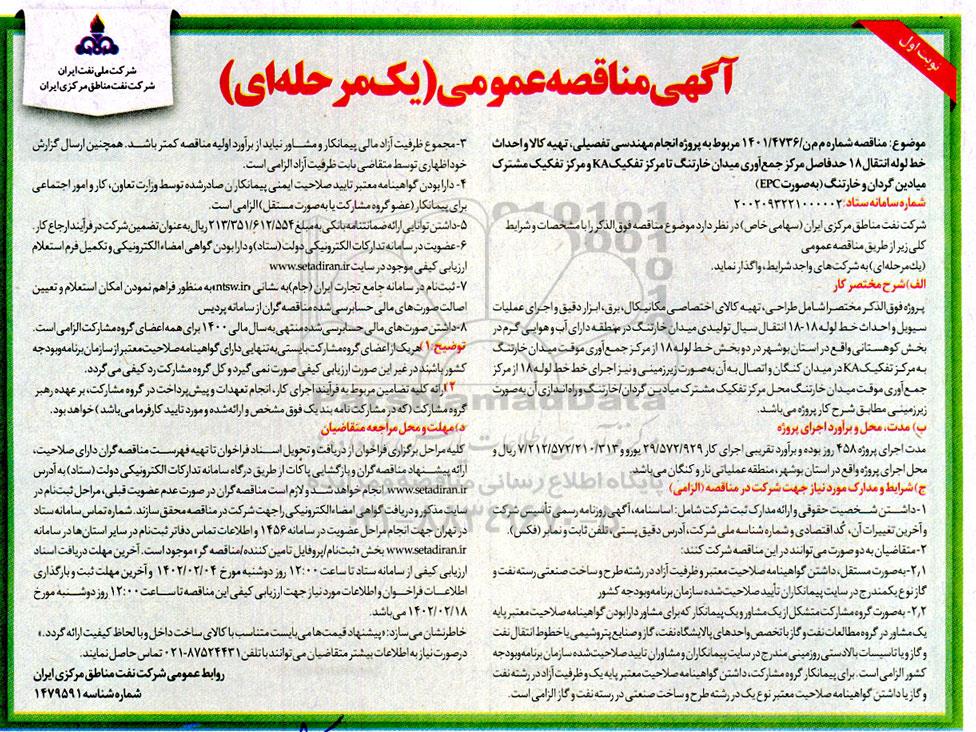 نوبت اول
شرکت ملی نفت ایران
شرکت نفت مناطق مرکزی ایران
آگهی مناقصه عمومی (یک مرحله‌ای)
موضوع: مناقصه شماره م م ن/۱۴۰۱/۴۷۳۶ مربوط به پروژه انجام مهندسی تفصیلی، تهیه کالا و احداث
خط لوله انتقال ۱۸ حدفاصل مرکز جمع‌آوری میدان خارتنگ تا مرکز تفکیک KA و مرکز تفکیک مشترک
میادین گردان و خارتنگ (به صورت EPC)
شماره سامانه ستاد: ۲۰۰۲۰۹۳۲۲۱۰۰۰۰۰۲
شرکت نفت مناطق مرکزی ایران (سهامی خاص) در نظر دارد موضوع مناقصه فوق الذکر را با مشخصات و شرایط
کلی زیر از طریق مناقصه عمومی
(یک مرحله‌ای) به شرکت‌های واجد شرایط، واگذار نماید.
الف) شرح مختصر کار
پروژه فوق الذکر مختصرا شامل طراحی، تهیه کالای اختصاصی مکانیکال، برق، ابزار دقیق و اجرای عملیات
سیویل و احداث خط لوله ۱۸-۱۸ انتقال سیال تولیدی میدان خارتنگ در منطقه دارای آب و هوایی گرم در
بخش کوهستانی واقع در استان بوشهر در دو بخش خط لوله ۱۸ از مرکز جمع‌آوری موقت میدان خارتنگ
به مرکز تفکیک KA در میدان کنگان و اتصال به آن به صورت زیرزمینی و نیز اجرای خط خط لوله ۱۸ از مرکز
جمع‌آوری موقت میدان خارتنگ محل مرکز تفکیک مشترک میادین گردان/خارتنگ و راه‌اندازی آن به صورت
زیرزمینی مطابق شرح کار پروژه می‌باشد.
ب) مدت، محل و برآورد اجرای پروژه
مدت اجرای پروژه ۴۵۸ روز بوده و برآورد تقریبی اجرای کار ۲۹/۵۷۲/۹۲۹ یورو و ۷/۲۱۲/۵۷۲/۲۱۰/۳۱۳ ریال و
محل اجرای پروژه واقع در استان بوشهر، منطقه عملیاتی نار و کنگان می‌باشد.
ج) شرایط و مدارک مورد نیاز جهت شرکت در مناقصه (الزامی)
۱- داشتن شخصیت حقوقی و ارائه مدارک ثبت شرکت شامل: اساسنامه، آگهی (روزنامه رسمی) تأسیس شرکت
و آخرین تغییرات آن، کد اقتصادی و شماره شناسه ملی شرکت، آدرس دقیق پستی، تلفن ثابت و نمابر (فکس).
۲- متقاضیان به دو صورت می‌توانند در این مناقصه شرکت کنند:
۲,۱- به صورت مستقل، داشتن گواهینامه صلاحیت معتبر و ظرفیت آزاد در رشته طرح و ساخت صنعتی رسته نفت و
گاز نوع یک مندرج در سایت پیمانکاران تأیید صلاحیت شده سازمان برنامه و بودجه کشور
۲,۲- به صورت گروه مشارکت متشکل از یک مشاور و یک پیمانکار که برای مشاور دارا بودن گواهینامه صلاحیت معتبر پایه
یک مشاور در گروه مطالعات نفت و گاز با تخصص واحدهای پالایشگاه نفت، گاز و صنایع پتروشیمی یا خطوط انتقال نفت
و گاز و یا تاسیسات بالادستی روزمینی مندرج در سایت پیمانکاران و مشاوران تایید صلاحیت شده سازمان برنامه و بودجه
کشور الزامی است. برای پیمانکار گروه مشارکت، داشتن گواهینامه صلاحیت معتبر پایه یک و ظرفیت آزاد در رشته نفت
و گاز یا داشتن گواهینامه صلاحیت معتبر نوع یک در رشته طرح و ساخت صنعتی در رسته نفت و گاز الزامی است.
۳- مجموع ظرفیت آزاد مالی پیمانکار و مشاور نباید از برآورد اولیه مناقصه کمتر باشد. همچنین ارسال گزارش
خود اظهاری توسط متقاضی بابت ظرفیت آزاد الزامی است.
۴- دارا بودن گواهینامه معتبر تایید صلاحیت ایمنی پیمانکاران صادر شده توسط وزارت تعاون، کار و امور اجتماعی
برای پیمانکار (عضو گروه مشارکت یا به صورت مستقل) الزامی است.
۵- داشتن توانایی ارائه ضمانتنامه بانکی به مبلغ ۲۱۳/۳۵۱/۶۱۲/۵۵۴ ریال به عنوان تضمین شرکت در فرآیند ارجاع کار.
۶- عضویت در سامانه تدارکات الکترونیکی دولت (ستاد) و دارا بودن گواهی امضاء الکترونیکی و تکمیل فرم استعلام
ارزیابی کیفی موجود در سایت www.setadiran.ir
۷- ثبت نام در سامانه جامع تجارت ایران (جام) به نشانی «ntsw.ir» به منظور فراهم نمودن امکان استعلام و تعیین
اصالت صورت‌های مالی حسابرسی شده مناقصه گران از سامانه پردیس
۸- داشتن صورت‌های مالی حسابرسی شده منتهی به سال مالی ۱۴۰۰ برای همه اعضای گروه مشارکت الزامی است.
توضیح: ۱) هر یک از اعضای گروه مشارکت بایستی به تنهایی دارای گواهینامه صلاحیت معتبر از سازمان برنامه و بودجه
کشور باشند در غیر این صورت ارزیابی کیفی صورت نمی گیرد و کل گروه مشارکت رد کیفی می گردد.
۲) ارائه کلیه تضامین مربوط به فرآیند اجرای کار، انجام تعهدات و پیش پرداخت در گروه مشارکت، بر عهده رهبر
گروه مشارکت (که در مشارکت نامه بند یک فوق مشخص و ارائه شده و مورد تایید کارفرما می باشد) خواهد بود.
د) مهلت و محل مراجعه متقاضیان
کلیه مراحل برگزاری فراخوان از دریافت و تحویل اسناد فراخوان تا تهیه فهرست مناقصه گران دارای صلاحیت،
ارائه پیشنهاد مناقصه گران و بازگشایی پاکات از طریق درگاه سامانه تدارکات الکترونیکی دولت (ستاد) به آدرس
www.setadiran.ir انجام خواهد شد و لازم است مناقصه گران در صورت عدم عضویت قبلی، مراحل ثبت نام در
سایت مذکور و دریافت گواهی امضاء الکترونیکی را جهت شرکت در مناقصه محقق سازند. شماره تماس سامانه ستاد
در تهران جهت انجام مراحل عضویت در سامانه ۱۴۵۶ و اطلاعات تماس دفاتر ثبت نام در سایر استان ها در سامانه
www.setadiran.ir بخش «ثبت نام/پروفایل تامین کننده/مناقصه گر» موجود است. آخرین مهلت دریافت اسناد
ارزیابی کیفی از سامانه ستاد تا ساعت ۱۲:۰۰ روز دوشنبه مورخ ۱۴۰۲/۰۲/۰۴ و آخرین مهلت ثبت و بارگذاری
اطلاعات فراخوان و اطلاعات مورد نیاز جهت ارزیابی کیفی این مناقصه تا ساعت ۱۲:۰۰ روز دوشنبه مورخ
۱۴۰۲/۰۲/۱۸ می باشد.
خاطرنشان می سازد: «پیشنهاد قیمت‌ها می بایست متناسب با کالای ساخت داخل و با لحاظ کیفیت ارائه گردد.»
در صورت نیاز به اطلاعات بیشتر متقاضیان می توانند با تلفن ۸۷۵۲۴۴۳۱-۰۲۱ تماس حاصل نمایند.
روابط عمومی شرکت نفت مناطق مرکزی ایران
شماره شناسه ۱۴۷۹۵۹۱
ParsNamadData
پایگاه اطلاع رسانی مناقصه و مزایده